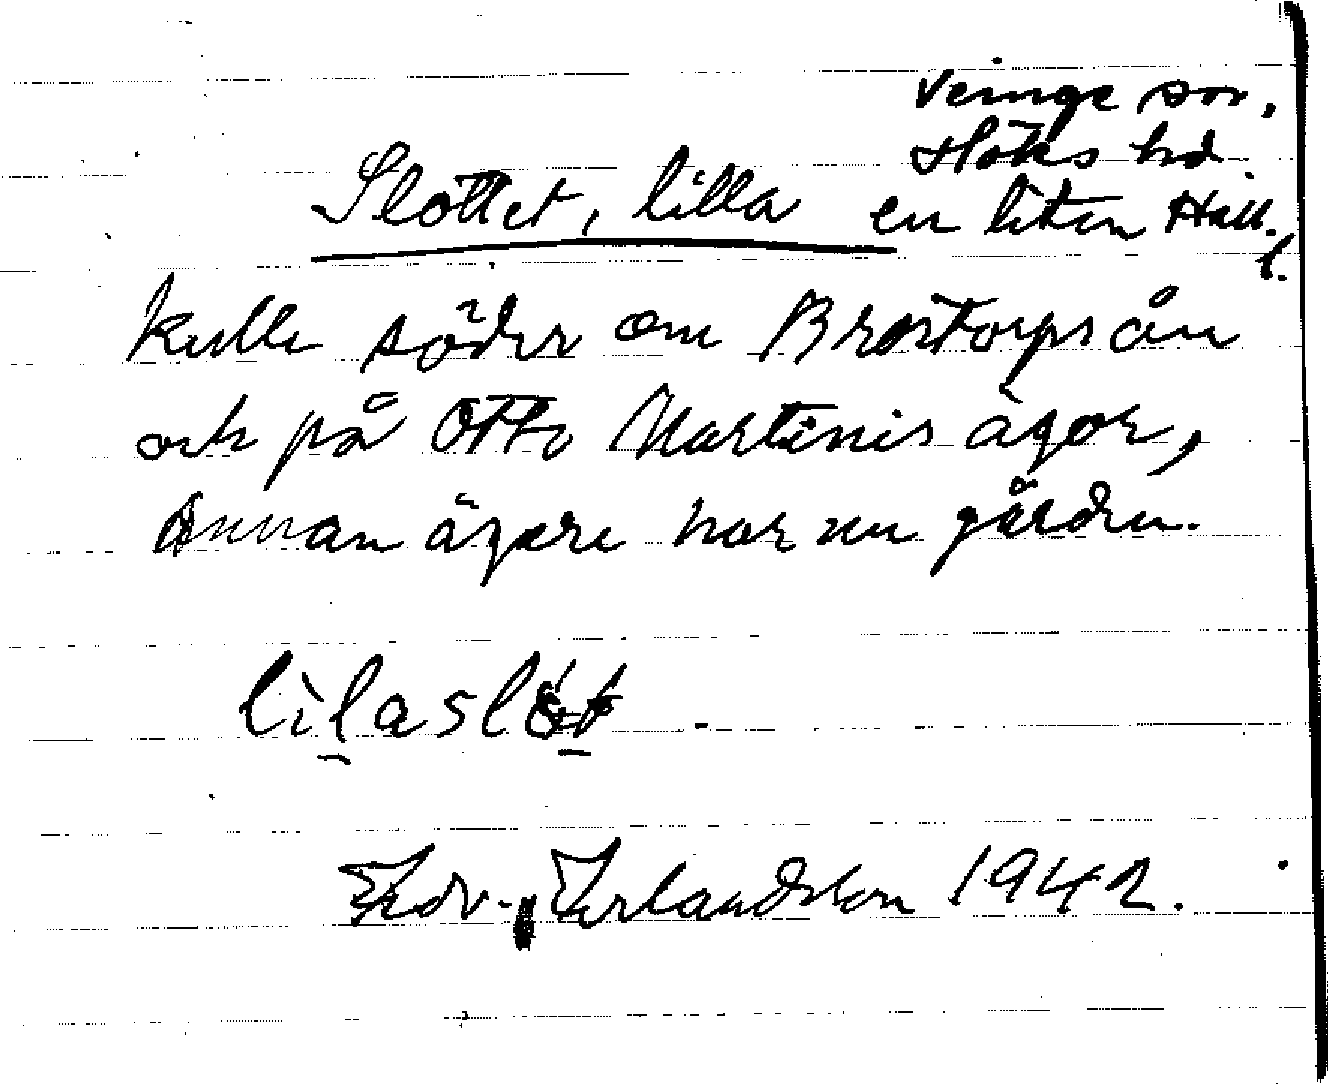 Veinge sn,
Höks hd.
Slottet, lilla en liten Hall.
l.
kulle söder om Brostorpsån
och på Otto Martinis ägor,
Annan ägare har nu gården.
lìlaslöt
Edv. Erlandsson 1942.